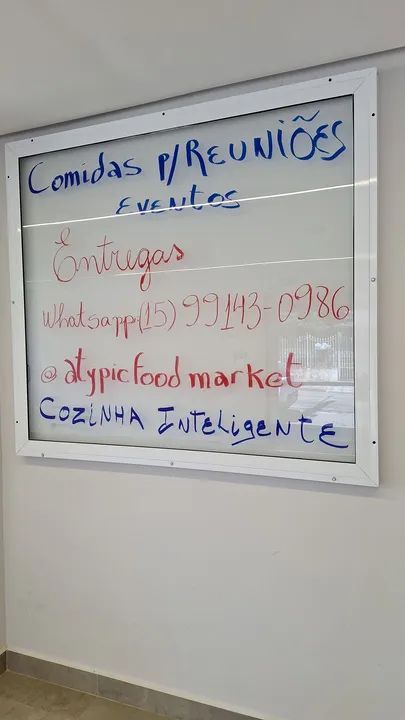 Comidas p/REUNIÕES
EVENTOS
Entregas
Whatsapp:(15) 99143-0986
@atypicfoodmarket
COZINHA INTELIGENTE